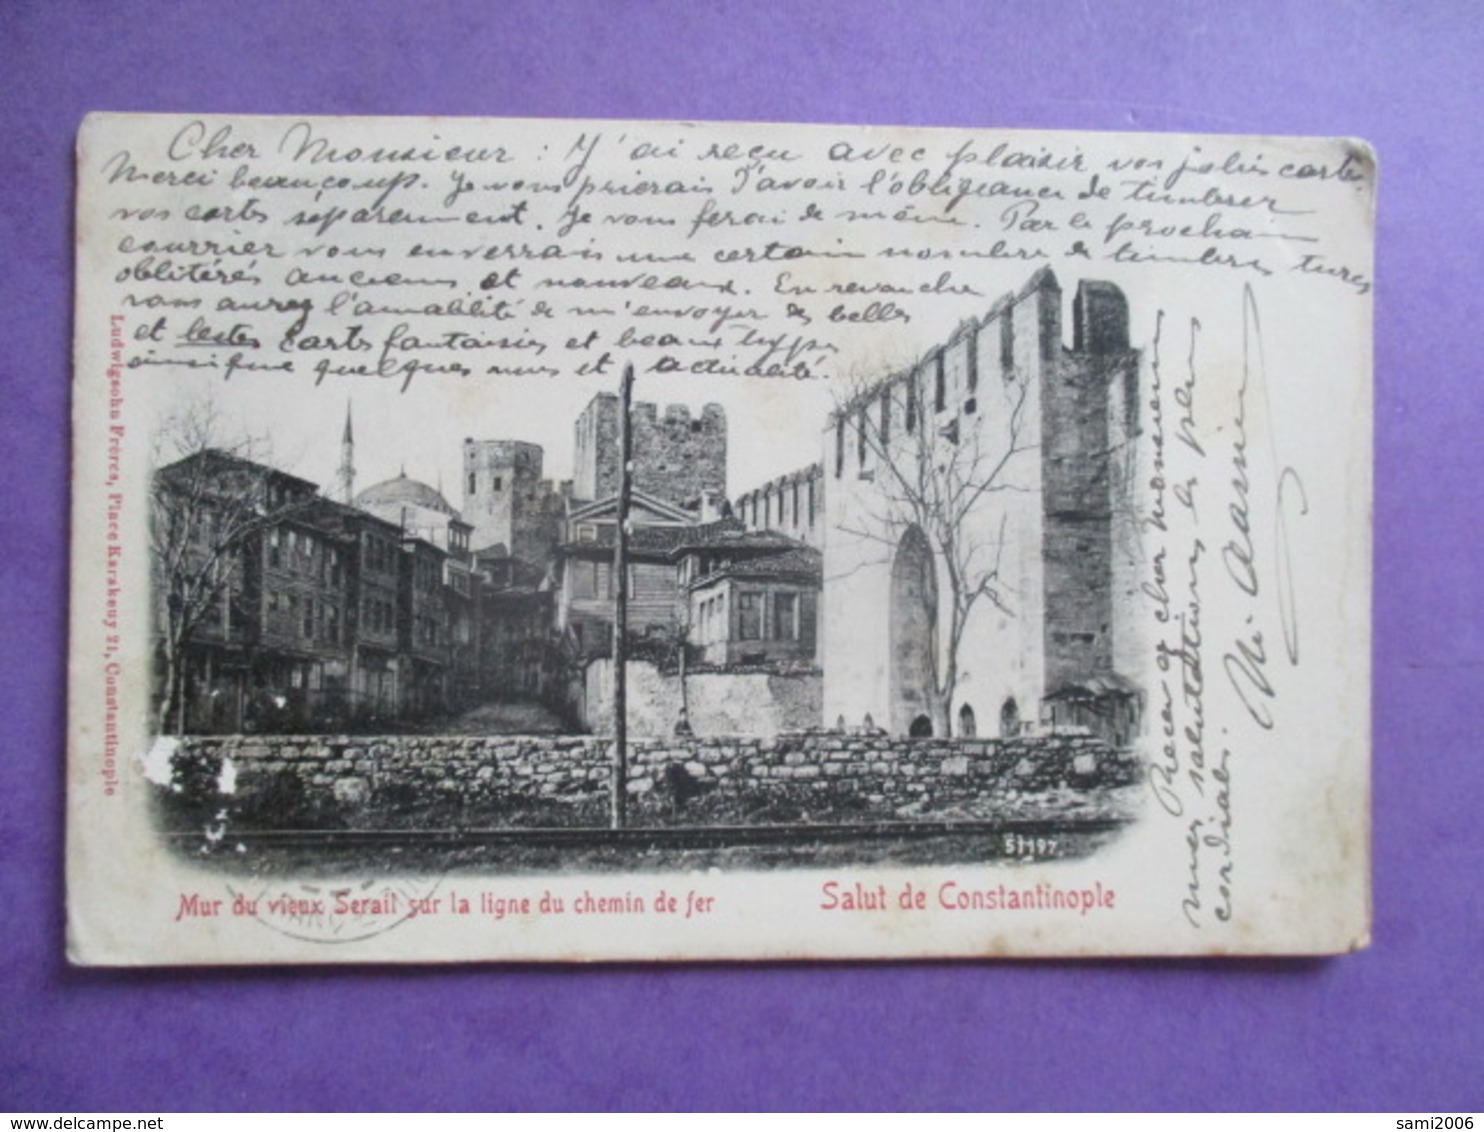 Cher Monsieur : J'ai reçu avec plaisir vos jolies cartes.
Merci beaucoup. Je vous prierais d'avoir l'obligeance de timbrer
vos cartes séparement. Je vous ferai de même. Par le prochain
courrier vous enverrais une certain nombre de timbres turcs
oblitérés anciens et nouveaux. En revanche
vous aurez l'amabilité de m'envoyer de belles
et belles cartes fantaisies et beaux types
ainsi que quelques vues et actualité.
Recevez cher monsieur
mes salutations les plus
cordiales.
Ludwigsohn Frères, Place Karakeuy 21, Constantinople
51197
Mur du vieux Serail sur la ligne du chemin de fer
Salut de Constantinople
sami2006